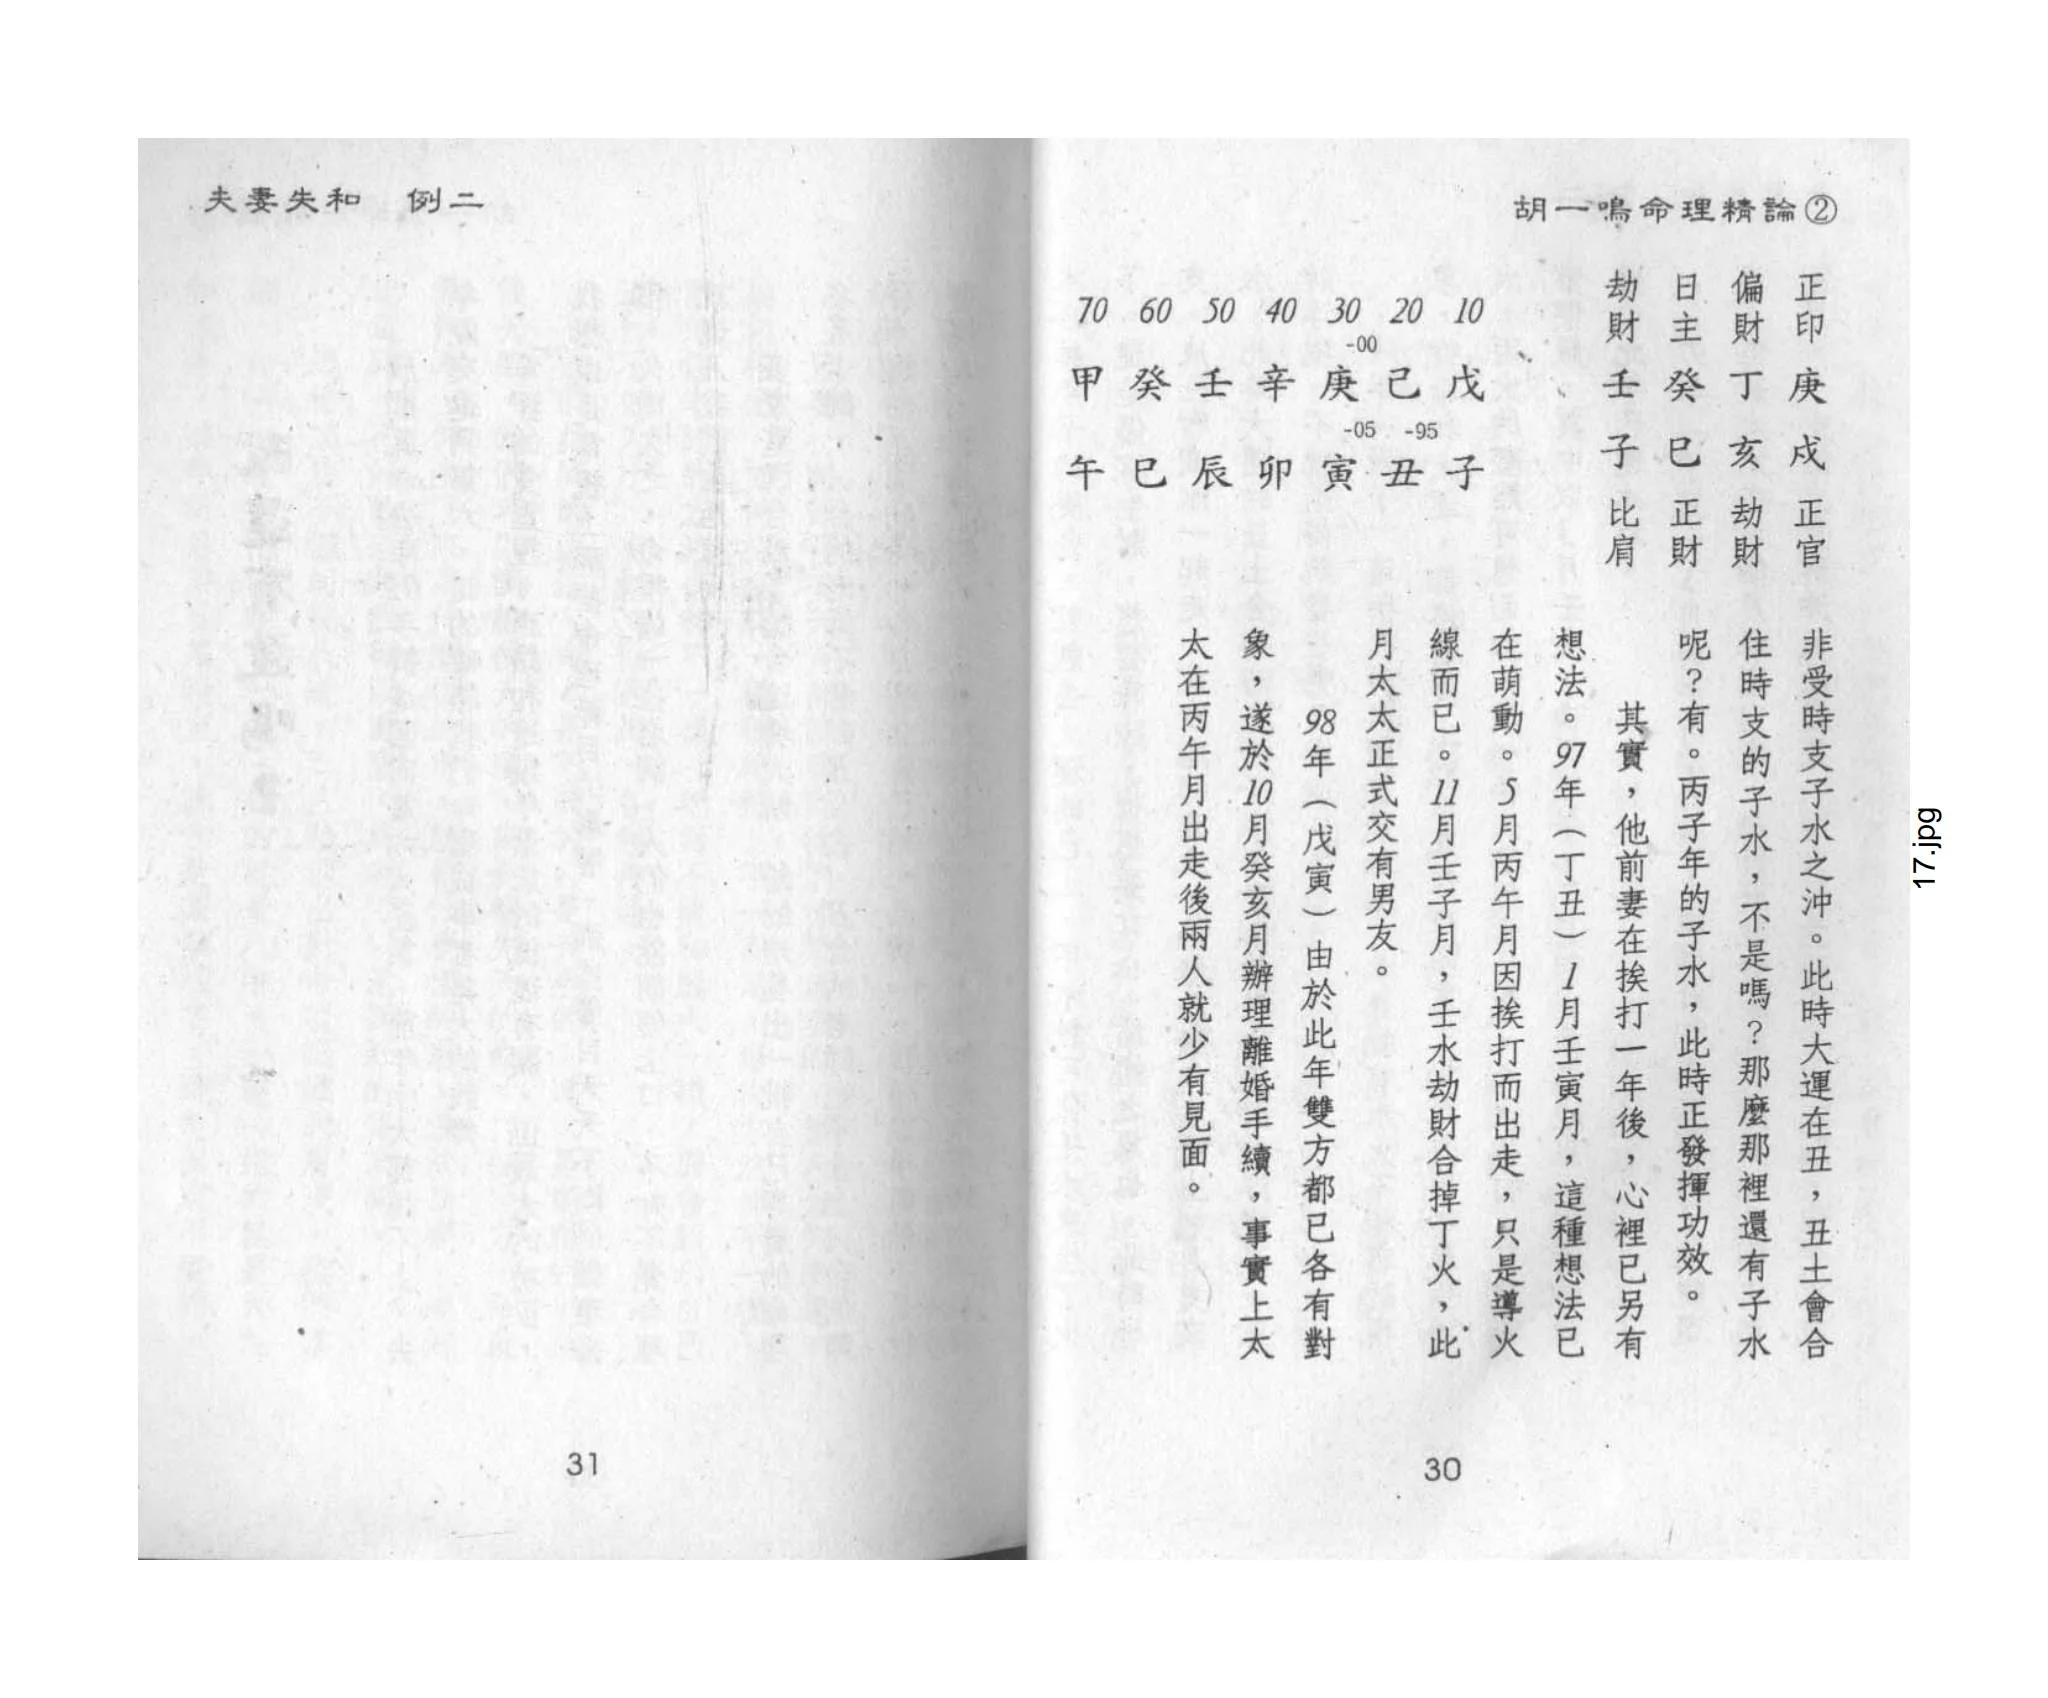 胡一鳴命理精論②
正印 庚 戌 正官
偏財 丁 亥 劫財
日主 癸 巳 正財
劫財 壬 子 比肩
10 戊 子
20 己 -95 丑
30 -00 庚 -05 寅
40 辛 卯
50 壬 辰
60 癸 巳
70 甲 午
非受時支子水之沖。此時大運在丑，丑土會合
住時支的子水，不是嗎？那麼那裡還有子水
呢？有。丙子年的子水，此時正發揮功效。
其實，他前妻在挨打一年後，心裡已另有
想法。97年（丁丑）1月壬寅月，這種想法已
在萌動。5月丙午月因挨打而出走，只是導火
線而已。11月壬子月，壬水劫財合掉丁火，此
月太太正式交有男友。
98年（戊寅）由於此年雙方都已各有對
象，遂於10月癸亥月辦理離婚手續，事實上太
太在丙午月出走後兩人就少有見面。
30
夫妻失和 例二
31
17.jpg